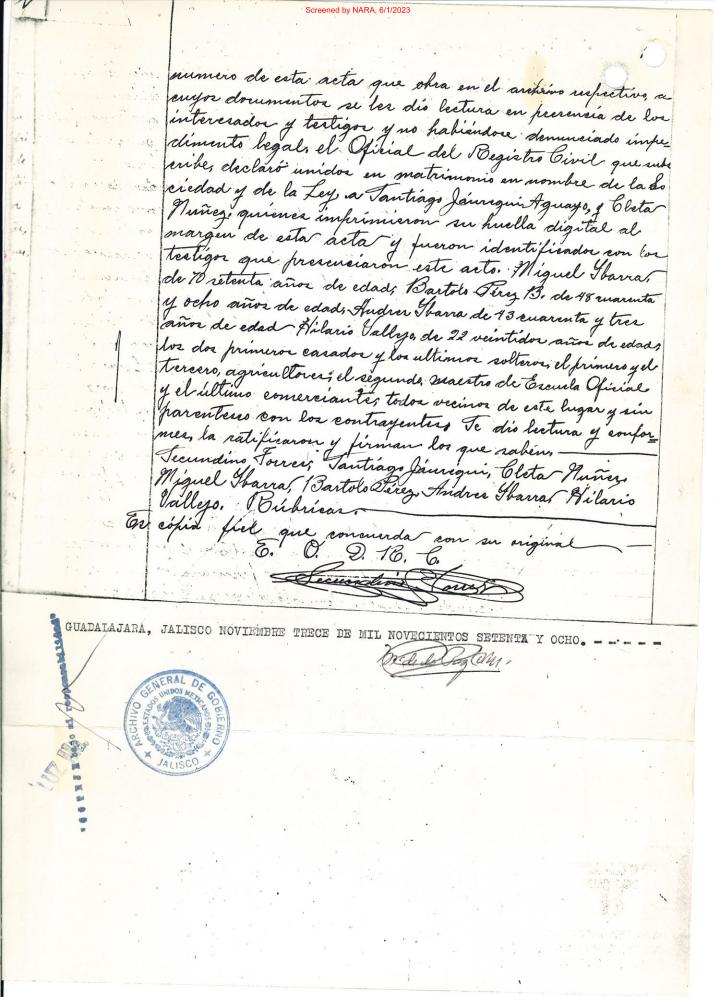 Screened by NARA, 6/1/2023
numero de esta acta que obra en el archivo respectivo, a
cuyos documentos se les dió lectura en presencia de los
interesados y testigos y no habiéndose denunciado impe-
dimento legal, el Oficial del Registro Civil que subs
cribe, declaró unidos en matrimonio en nombre de la So
ciedad y de la Ley, a Santiágo Jáuregui Aguayo, y Cleta
Nuñez, quienes imprimieron su huella digital al
margen de esta acta y fueron identificados con los
testigos que presenciaron este acto. Miguel Ybarra,
de 70 setenta años de edad, Bartolo Pérez B. de 48 cuarenta
y ocho años de edad, Andres Ybarra de 43 cuarenta y tres
años de edad Hilario Vallejo, de 22 veintidos años de edad,
los dos primeros casados y los ultimos solteros, el primero y el
tercero, agricultores, el segundo, maestro de Escuela Oficial
y el último comerciante, todos vecinos de este lugar y sin
parentesco con los contrayentes. Se dió lectura y confor-
mes, la ratificaron y firman los que saben.
Secundino Torres, Santiágo Jáuregui, Cleta Nuñez,
Miguel Ybarra, Bartolo Pérez, Andres Ybarra, Hilario
Vallejo. Rúbricas.
Es cópia fiel que concuerda con su original
E. O. D. R. C.
Secundino Torres
GUADALAJARA, JALISCO NOVIEMBRE TRECE DE MIL NOVECIENTOS SETENTA Y OCHO.-----
ARCHIVO GENERAL DE GOBIERNO
ESTADOS UNIDOS MEXICANOS
JALISCO
COTEJE bajo mi responsabilidad
LUZ